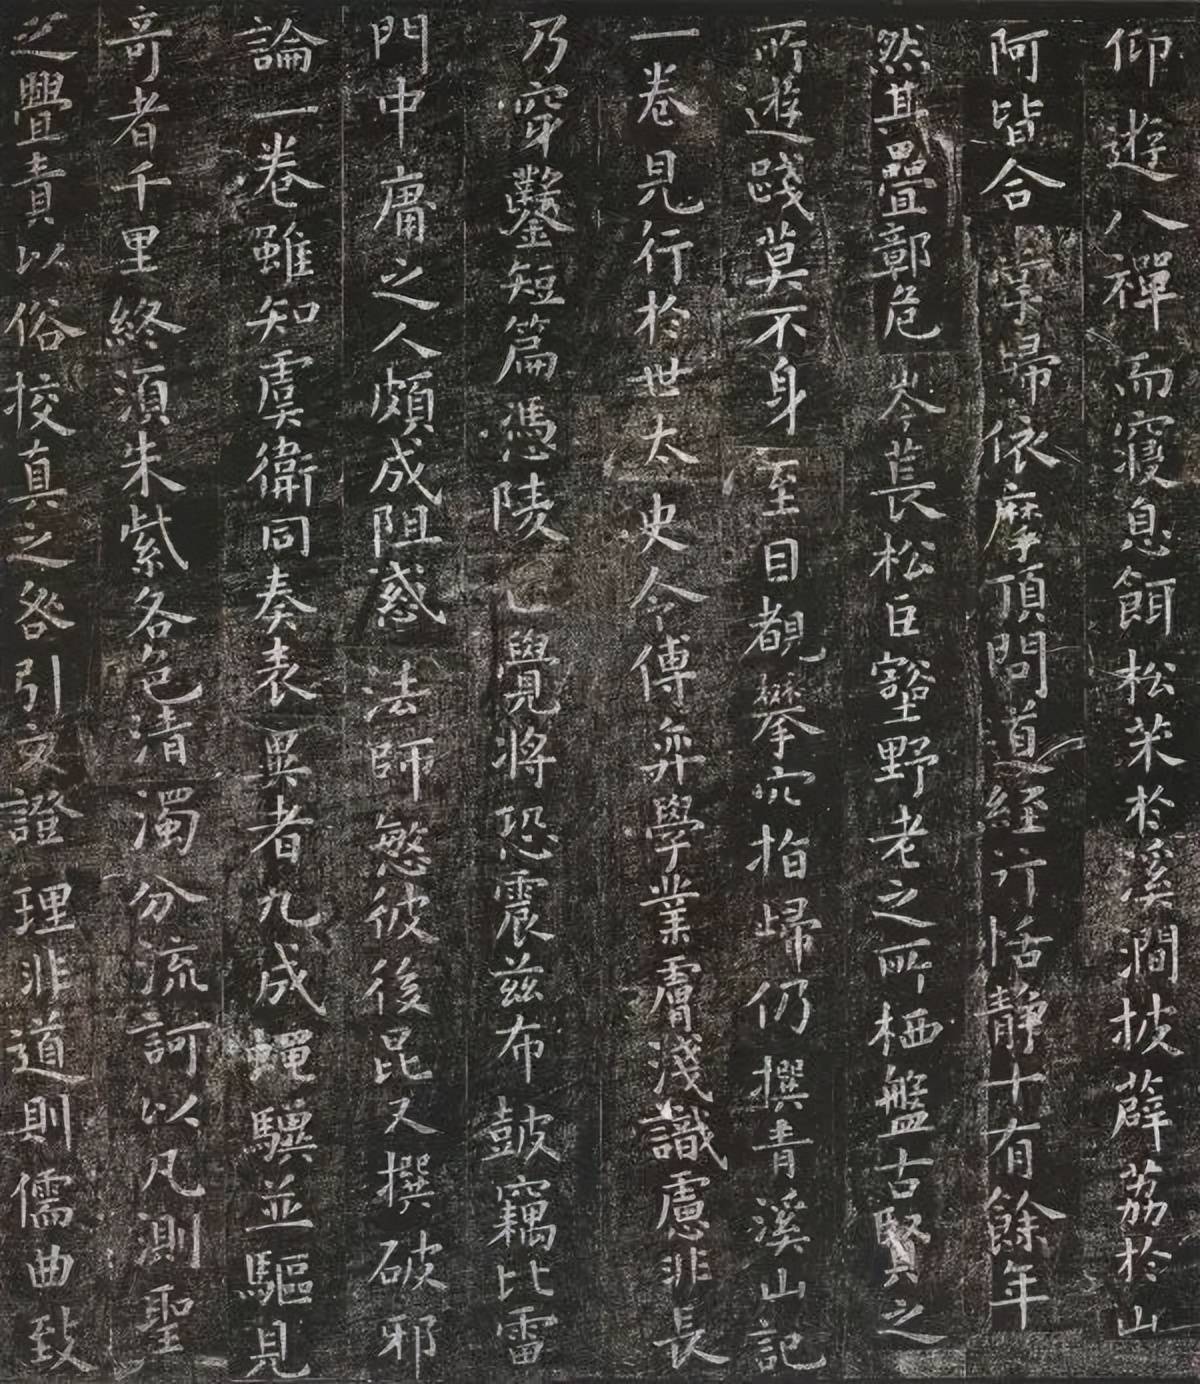 仰遊八禪而寢息餌松茱於溪澗披薜荔於山
阿皆合掌歸依摩頂問道經行恬靜十有餘年
然其疊鄣危岑萇松巨豁野老之所栖盤古賢之
所遊踐莫不身至目覩攀穴指歸仍撰青溪山記
一卷見行於世太史令傅弈學業膚淺識慮非長
乃穿鑿短篇憑陵正覺將恐震茲布皷竊比雷
門中庸之人頗成阻惑法師慜彼後昆又撰破邪
論一卷雖知虞衛同奏表異者九成蠅驥並驅見
奇者千里終須朱紫各色清濁分流訶以凡測聖
之舋責以俗挍真之咎引文證理非道則儒曲致